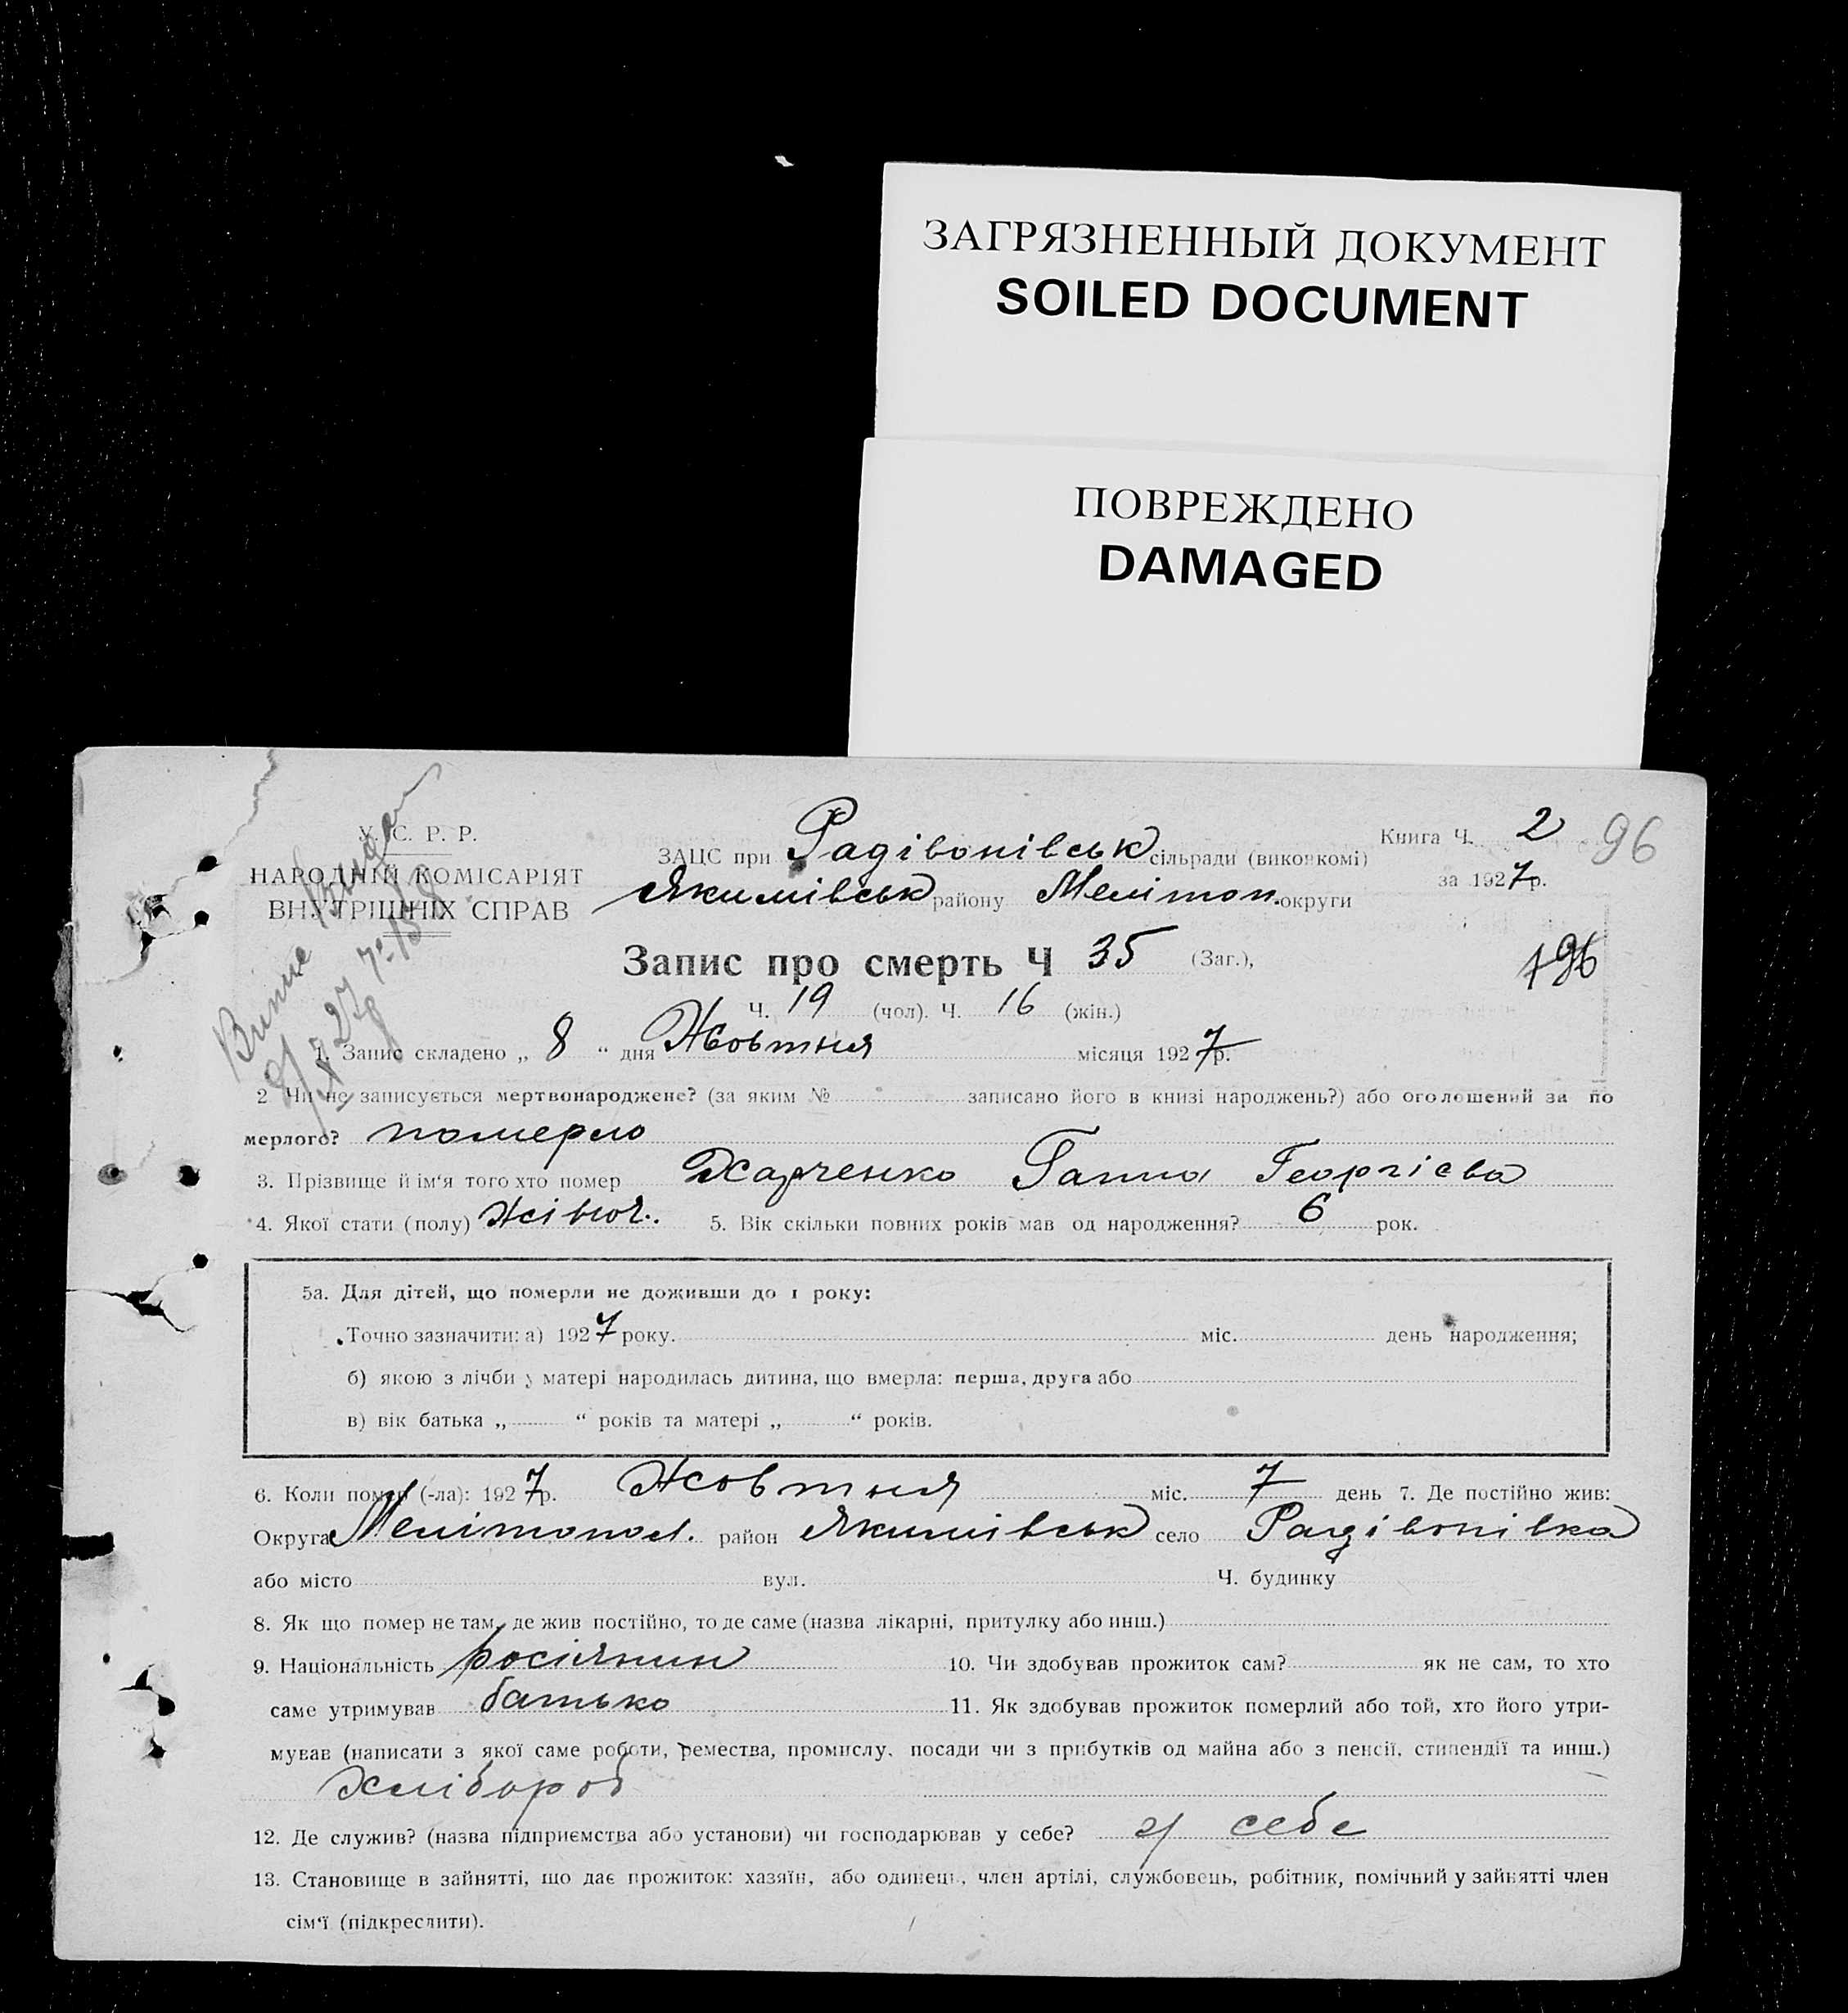 ЗАГРЯЗНЕННЫЙ ДОКУМЕНТ
SOILED DOCUMENT
ПОВРЕЖДЕНО
DAMAGED
У. С. Р. Р.
НАРОДНІЙ КОМІСАРІЯТ
ВНУТРІШНІХ СПРАВ
ЗАЦС при Радівонівськ сільради (виконкомі)
Якимівськ району Мелітоп. округи
Книга Ч. 2 96
за 1927 р.
Запис про смерть Ч 35 (Заг.),
196
Ч. 19 (чол). Ч. 16 (жін.)
1. Запис складено „ 8 “ дня Жовтня місяця 1927 р.
2 Чи не записується мертвонароджене? (за яким № записано його в книзі народжень?) або оголошений за по
мерлого? померло
3. Прізвище й ім‘я того хто помер Харченко Ганна Георгієва
4. Якої стати (полу) жіноч. 5. Вік скільки повних років мав од народження? 6 рок.
5а. Для дітей, що померли не доживши до 1 року:
Точно зазначити: а) 1927 року. міс. день народження;
б) якою з лічби у матері народилась дитина, що вмерла: перша, друга або
в) вік батька „ “ років та матері „ “ років.
6. Коли помер (-ла): 1927 р. Жовтня міс. 7 день 7. Де постійно жив:
Округа Мелітопол. район Якимівськ село Радівонівка
або місто вул. Ч. будинку
8. Як що помер не там, де жив постійно, то де саме (назва лікарні, притулку або инш.)
9. Національність росіянин 10. Чи здобував прожиток сам? як не сам, то хто
саме утримував батько 11. Як здобував прожиток померлий або той, хто його утри-
мував (написати з якої саме роботи, ремества, промислу, посади чи з прибутків од майна або з пенсії, стипендії та инш.)
Хлібороб
12. Де служив? (назва підприємства або установи) чи господарював у себе? у себе
13. Становище в зайнятті, що дає прожиток: хазяїн, або одинець, член артілі, службовець, робітник, помічний у зайнятті член
сім‘ї (підкреслити).